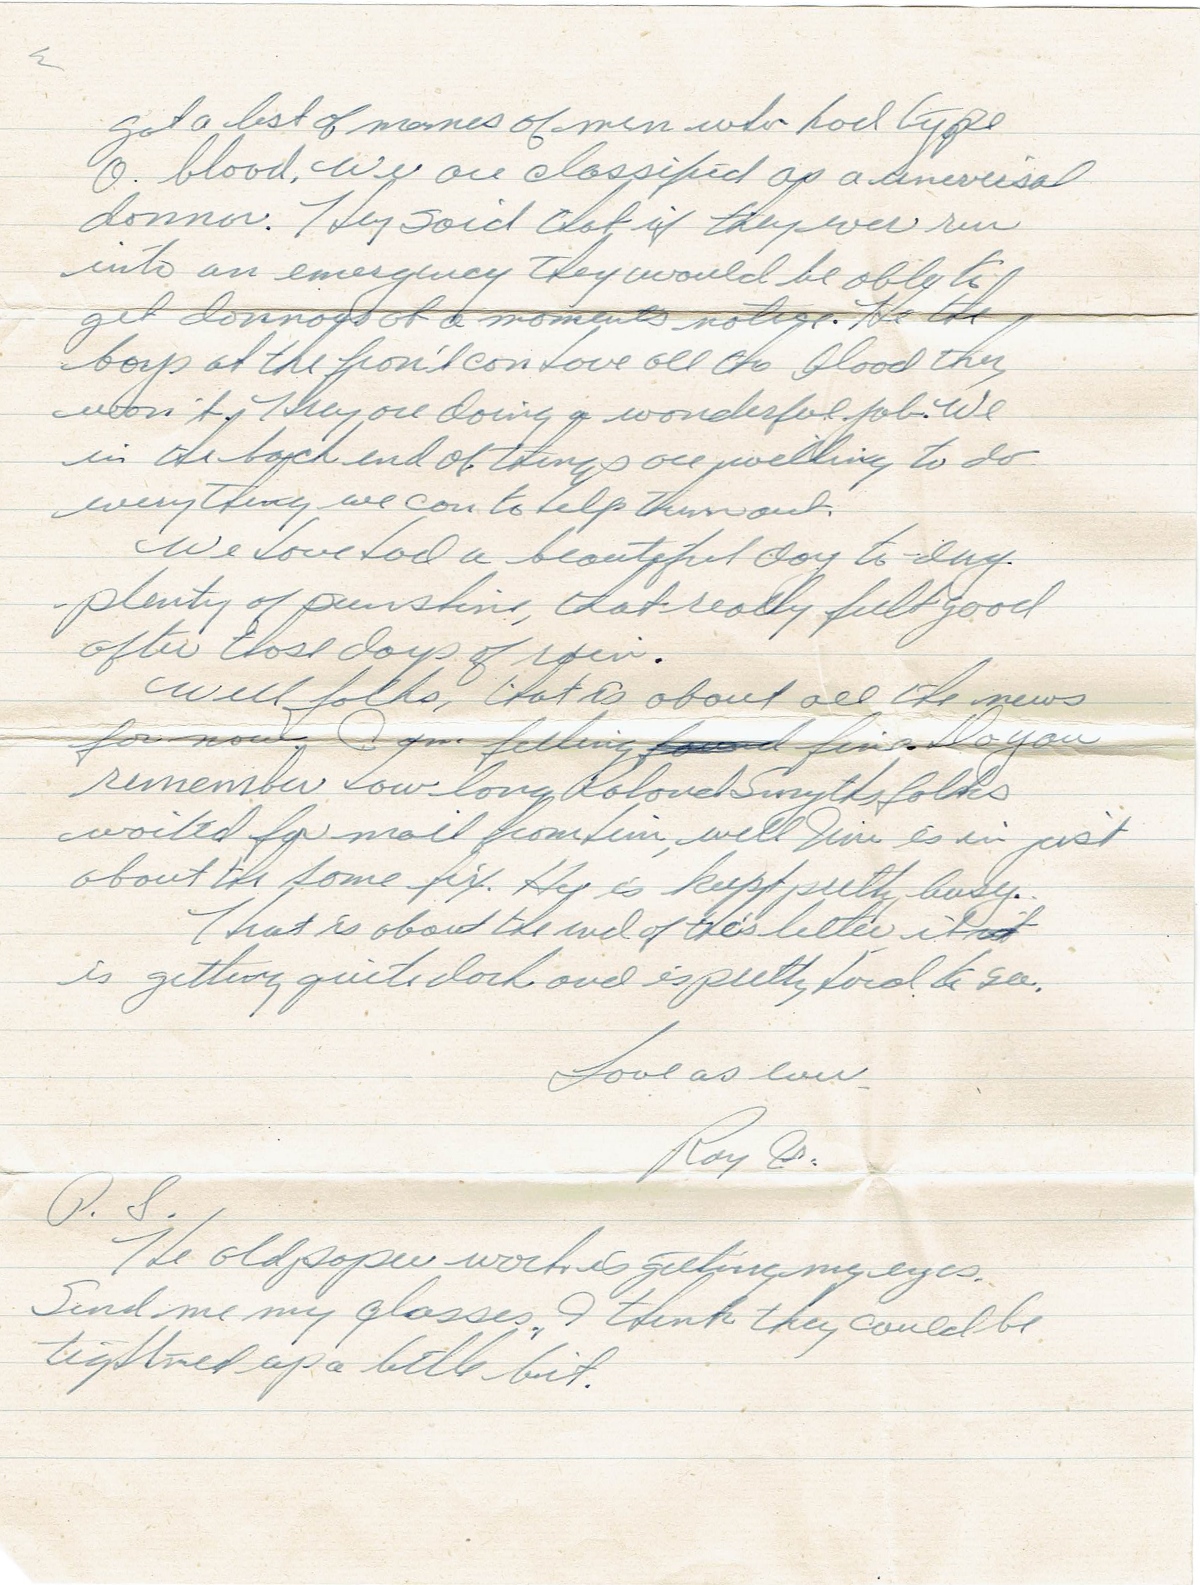 2
got a list of names of men who had type
O. blood. We are classified as a universal
donnor. They said that if they ever run
into an emergency they would be able to
get donnors at a moments notice. The
boys at the front can have all the blood they
want. They are doing a wonderful job. We
in the back end of things are willing to do
everything we can to help them out.
We have had a beautiful day to-day.
plenty of sunshine, that really felt good
after those days of rain.
Well folks, that is about all the news
for now. I am feeling fine. Do you
remember how long Roland Smyths folks
waited for mail from him, well Jim is in just
about the same fix. He is kept pretty busy.
That is about the end of this letter, it
is getting quite dark and is pretty hard to see.
Love as ever
Roy
P. S.
The old paper work is getting my eyes.
Send me my glasses, I think they could be
tightned up a little bit.